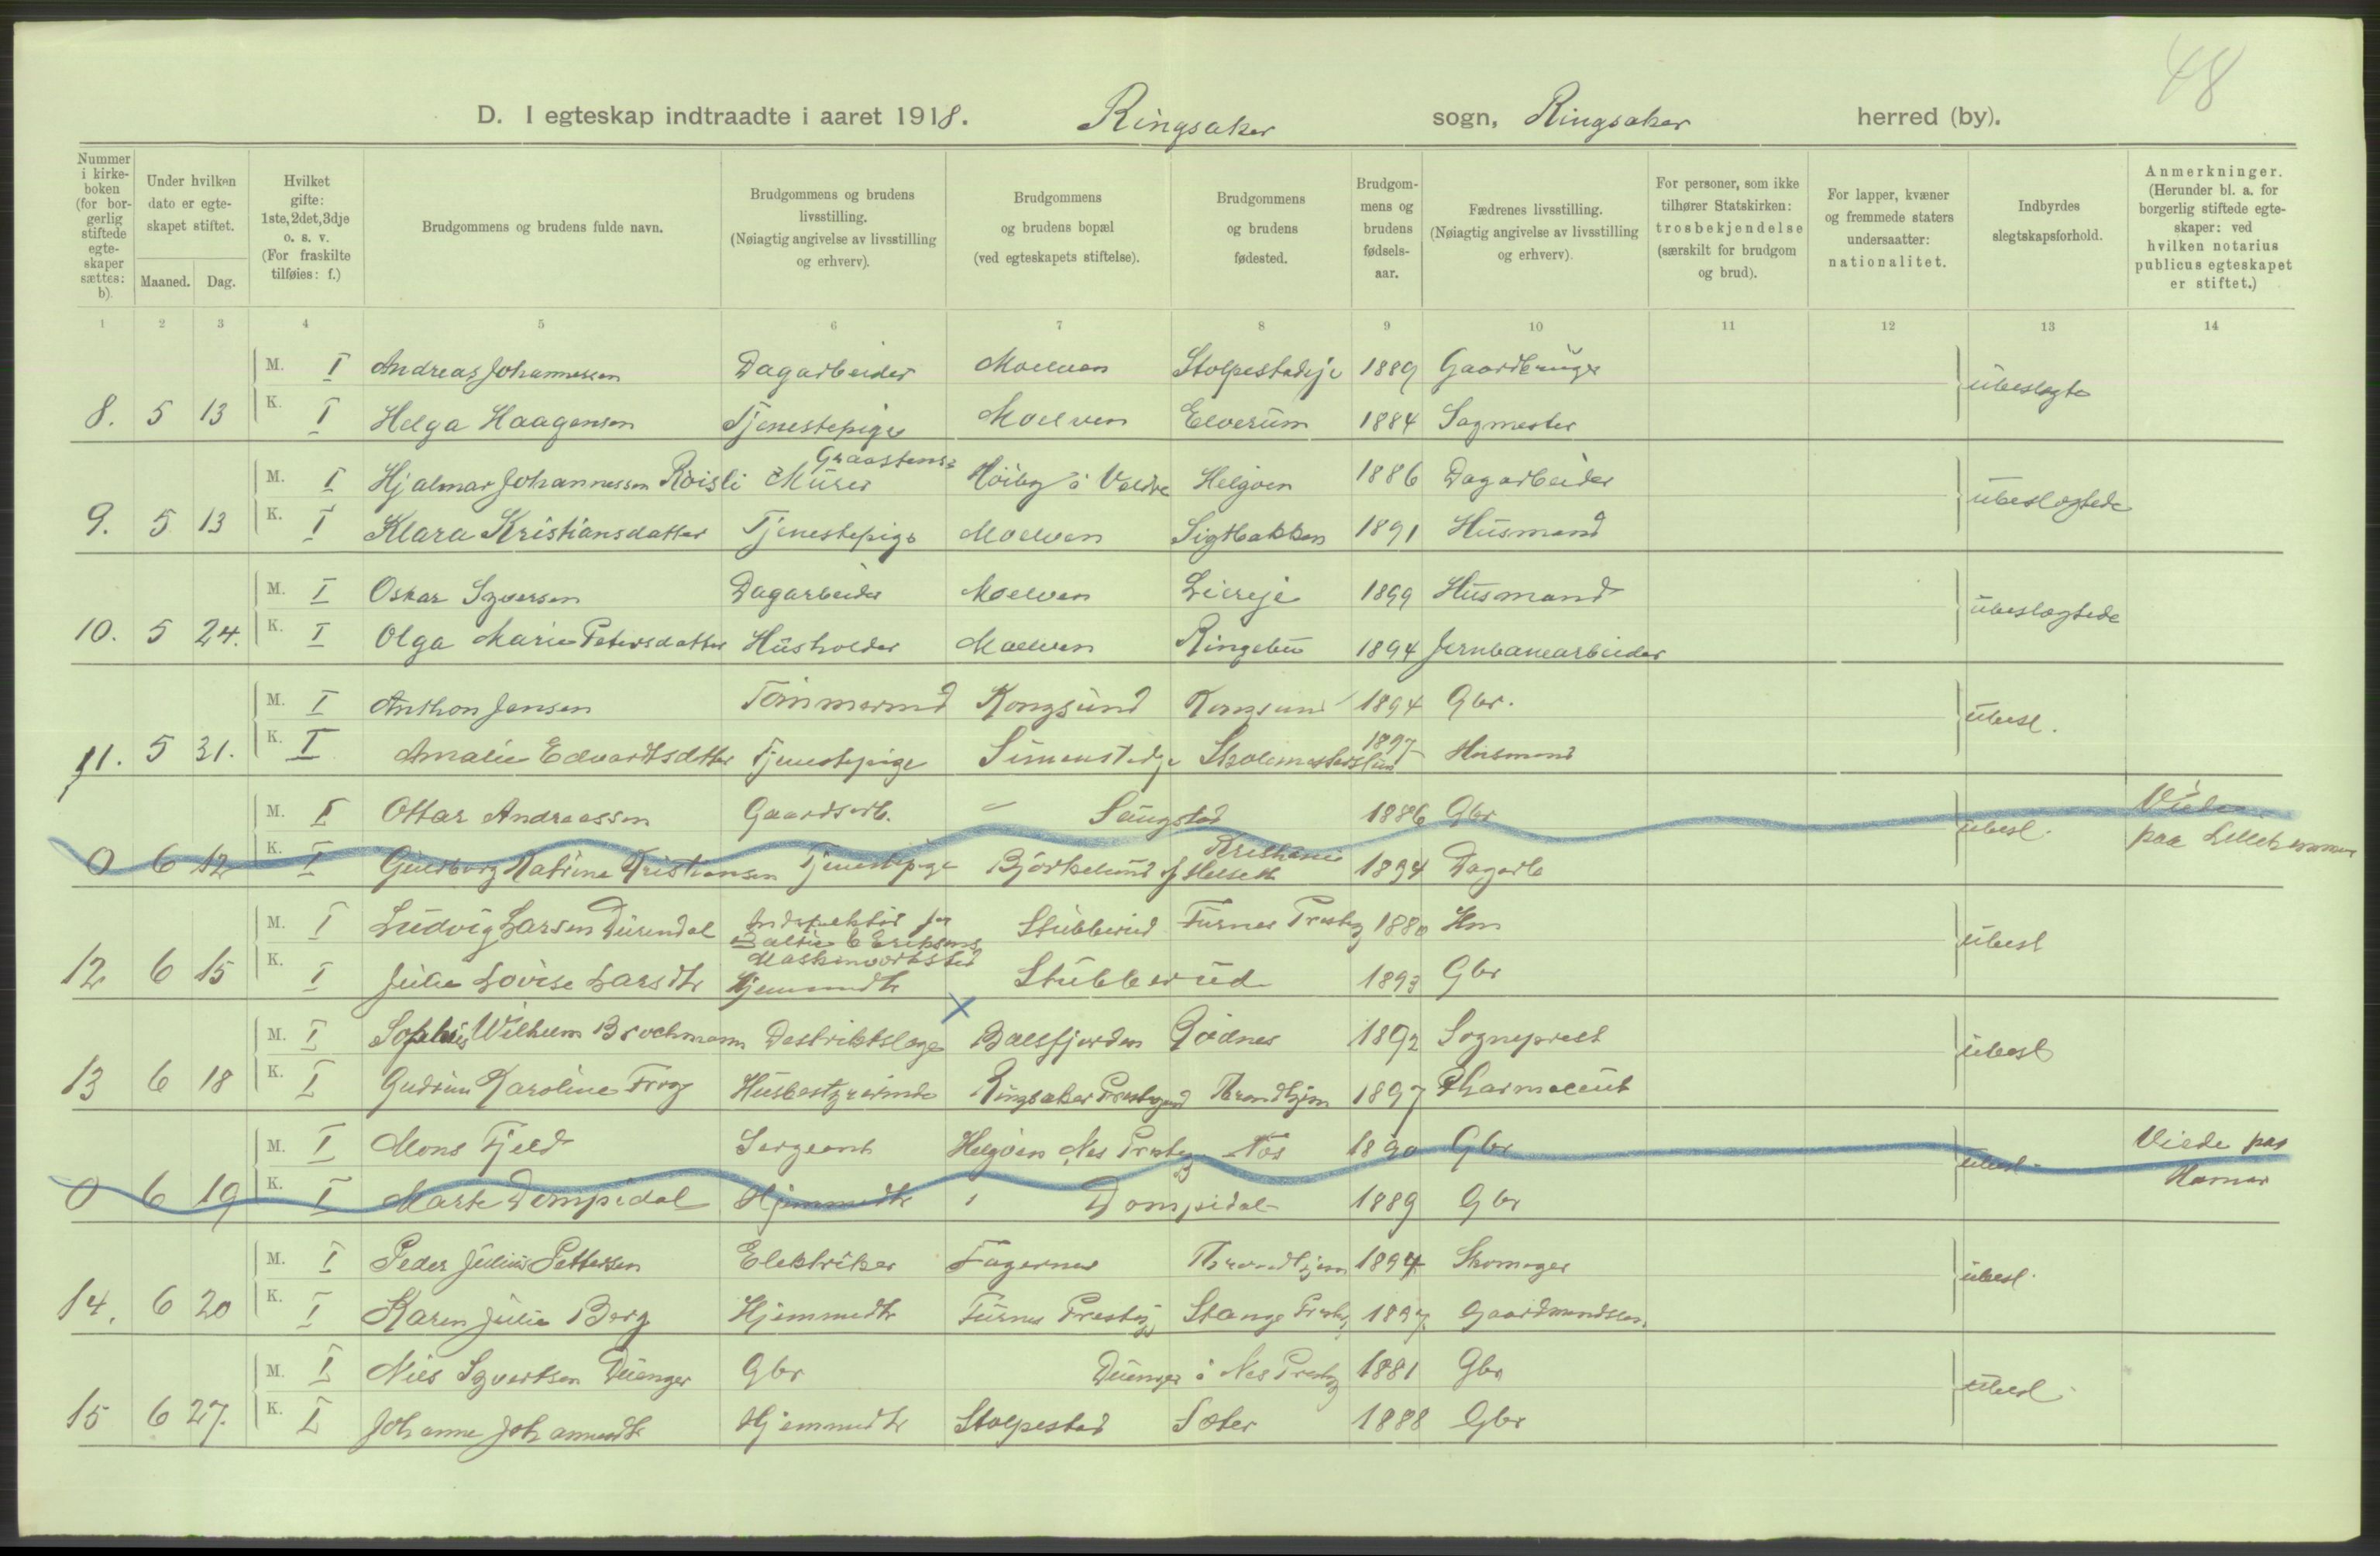 48
D. I egteskap indtraadte i aaret 1918. Ringsaker sogn, Ringsaker herred (by).
Nummer i kirke-boken (for bor-gerlig stiftede egte-skaper sættes: b).
Under hvilken dato er egte-skapet stiftet.
Maaned. Dag.
Hvilket gifte: 1ste, 2det, 3dje o. s. v. (For fraskilte tilføies: f.)
Brudgommens og brudens fulde navn.
Brudgommens og brudens livsstilling. (Nøiagtig angivelse av livsstilling og erhverv).
Brudgommens og brudens bopæl (ved egteskapets stiftelse).
Brudgommens og brudens fødested.
Brudgom-mens og brudens fødsels-aar.
Fædrenes livsstilling. (Nøiagtig angivelse av livsstilling og erhverv).
For personer, som ikke tilhører Statskirken: trosbekjendelse (særskilt for brudgom og brud).
For lapper, kvæner og fremmede staters undersaatter: nationalitet.
Indbyrdes slegtskapsforhold.
Anmerkninger. (Herunder bl. a. for borgerlig stiftede egte-skaper: ved hvilken notarius publicus egteskapet er stiftet.)
1 2 3 4 5 6 7 8 9 10 11 12 13 14
M. I Andreas Johannessen Dagarbeider Moelven Stolpestadeje 1889 Gaardbruger
ubeslegte
8. 5 13 K. I Helga Haagensen Tjenestepige Moelven Elverum 1884 Sagmester
Graastens=
M. I Hjalmar Johannessen Roisli Murer Høiby i Veldre Helgøen 1886 Dagarbeider
ubeslegtede
9. 5 13 K. I Klara Kristiansdatter Tjenestepige Moelven Sigtbakken 1891 Husmand
M. I Oskar Syversen Dagarbeider Moelven Liereje 1899 Husmand
ubeslegtede
10. 5 24. K. I Olga Marie Petersdatter Husholder Moelven Ringebu 1894 Jernbanearbeider
M. I Anthon Jensen Tømmermd Kongsund Kongsund 1894 Gbr.
ubesl.
11. 5 31. K. I Amalie Edvardtsdatter Tjenestepige Simenstadje Skolemesterstuen 1897 Husmand
M. I Ottar Andreassen Gaardsarb. Saugstad 1886 Gbr
ubesl. Viede paa Lillehammer
Kristiania
0 6 12 K. I Guldborg Katrine Kristiansen Tjenestepige Bjørkelund 1894 Dagarb
M. I Ludvig Larsen Durendal Stubberud Furnes Prestg 1880 Hm
ubesl
Maskinverksted
12 6 15 K. I Julie Lovise Larsdtr Hjemmedtr Stubberud 1893 Gbr
X
M. I Sophus Wilhelm Brochmann Destriktslæge Balsfjorden 1892 Sogneprest
ubesl
13 6 18 K. I Gudrun Karoline Husbestyrerinde Ringsaker Prestegaard Trondhjem 1897 Pharmaceut
M. I Mons Fjeld Sergeant Helgøen Nes Prestg 1890 Gbr
ubesl. Viede paa Hamar
0 6 19 K. I Marte Dompidal Hjemmedtr Dompidal 1889 Gbr
M. I Peder Julius Pettersen Elektriker Fagernes Throndhjem 1894 Skomager
ubesl.
14. 6 20 K. I Karen Julie Berg Hjemmedtr Furnes Prestg Stange Prestg 1897 Gaardmandsen.
M. I Nils Syvertsen Duenger Gbr Duenger i Nes Prestg 1881 Gbr
ubesl.
15 6 27. K. I Johanne Johannesdtr Hjemmedtr Stolpestad Sæter 1888 Gbr